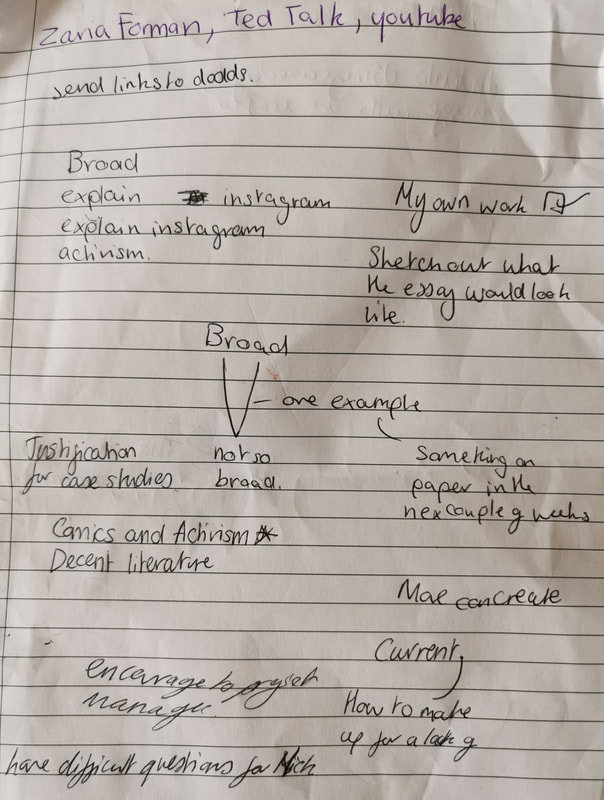 Zana Forman, Ted Talk, youtube
send links to dodds.
Broad
explain instagram
explain instagram
activism.
My own work
Sketch out what
the essay would look
like.
Broad
one example
Justification
for case studies
not so
broad.
Something on
paper in the
nex couple of weeks
Comics and Activism
Decent literature
Mae can create
Current
encourage to project
manage
How to make
up for a lack of
have difficult questions for Nich